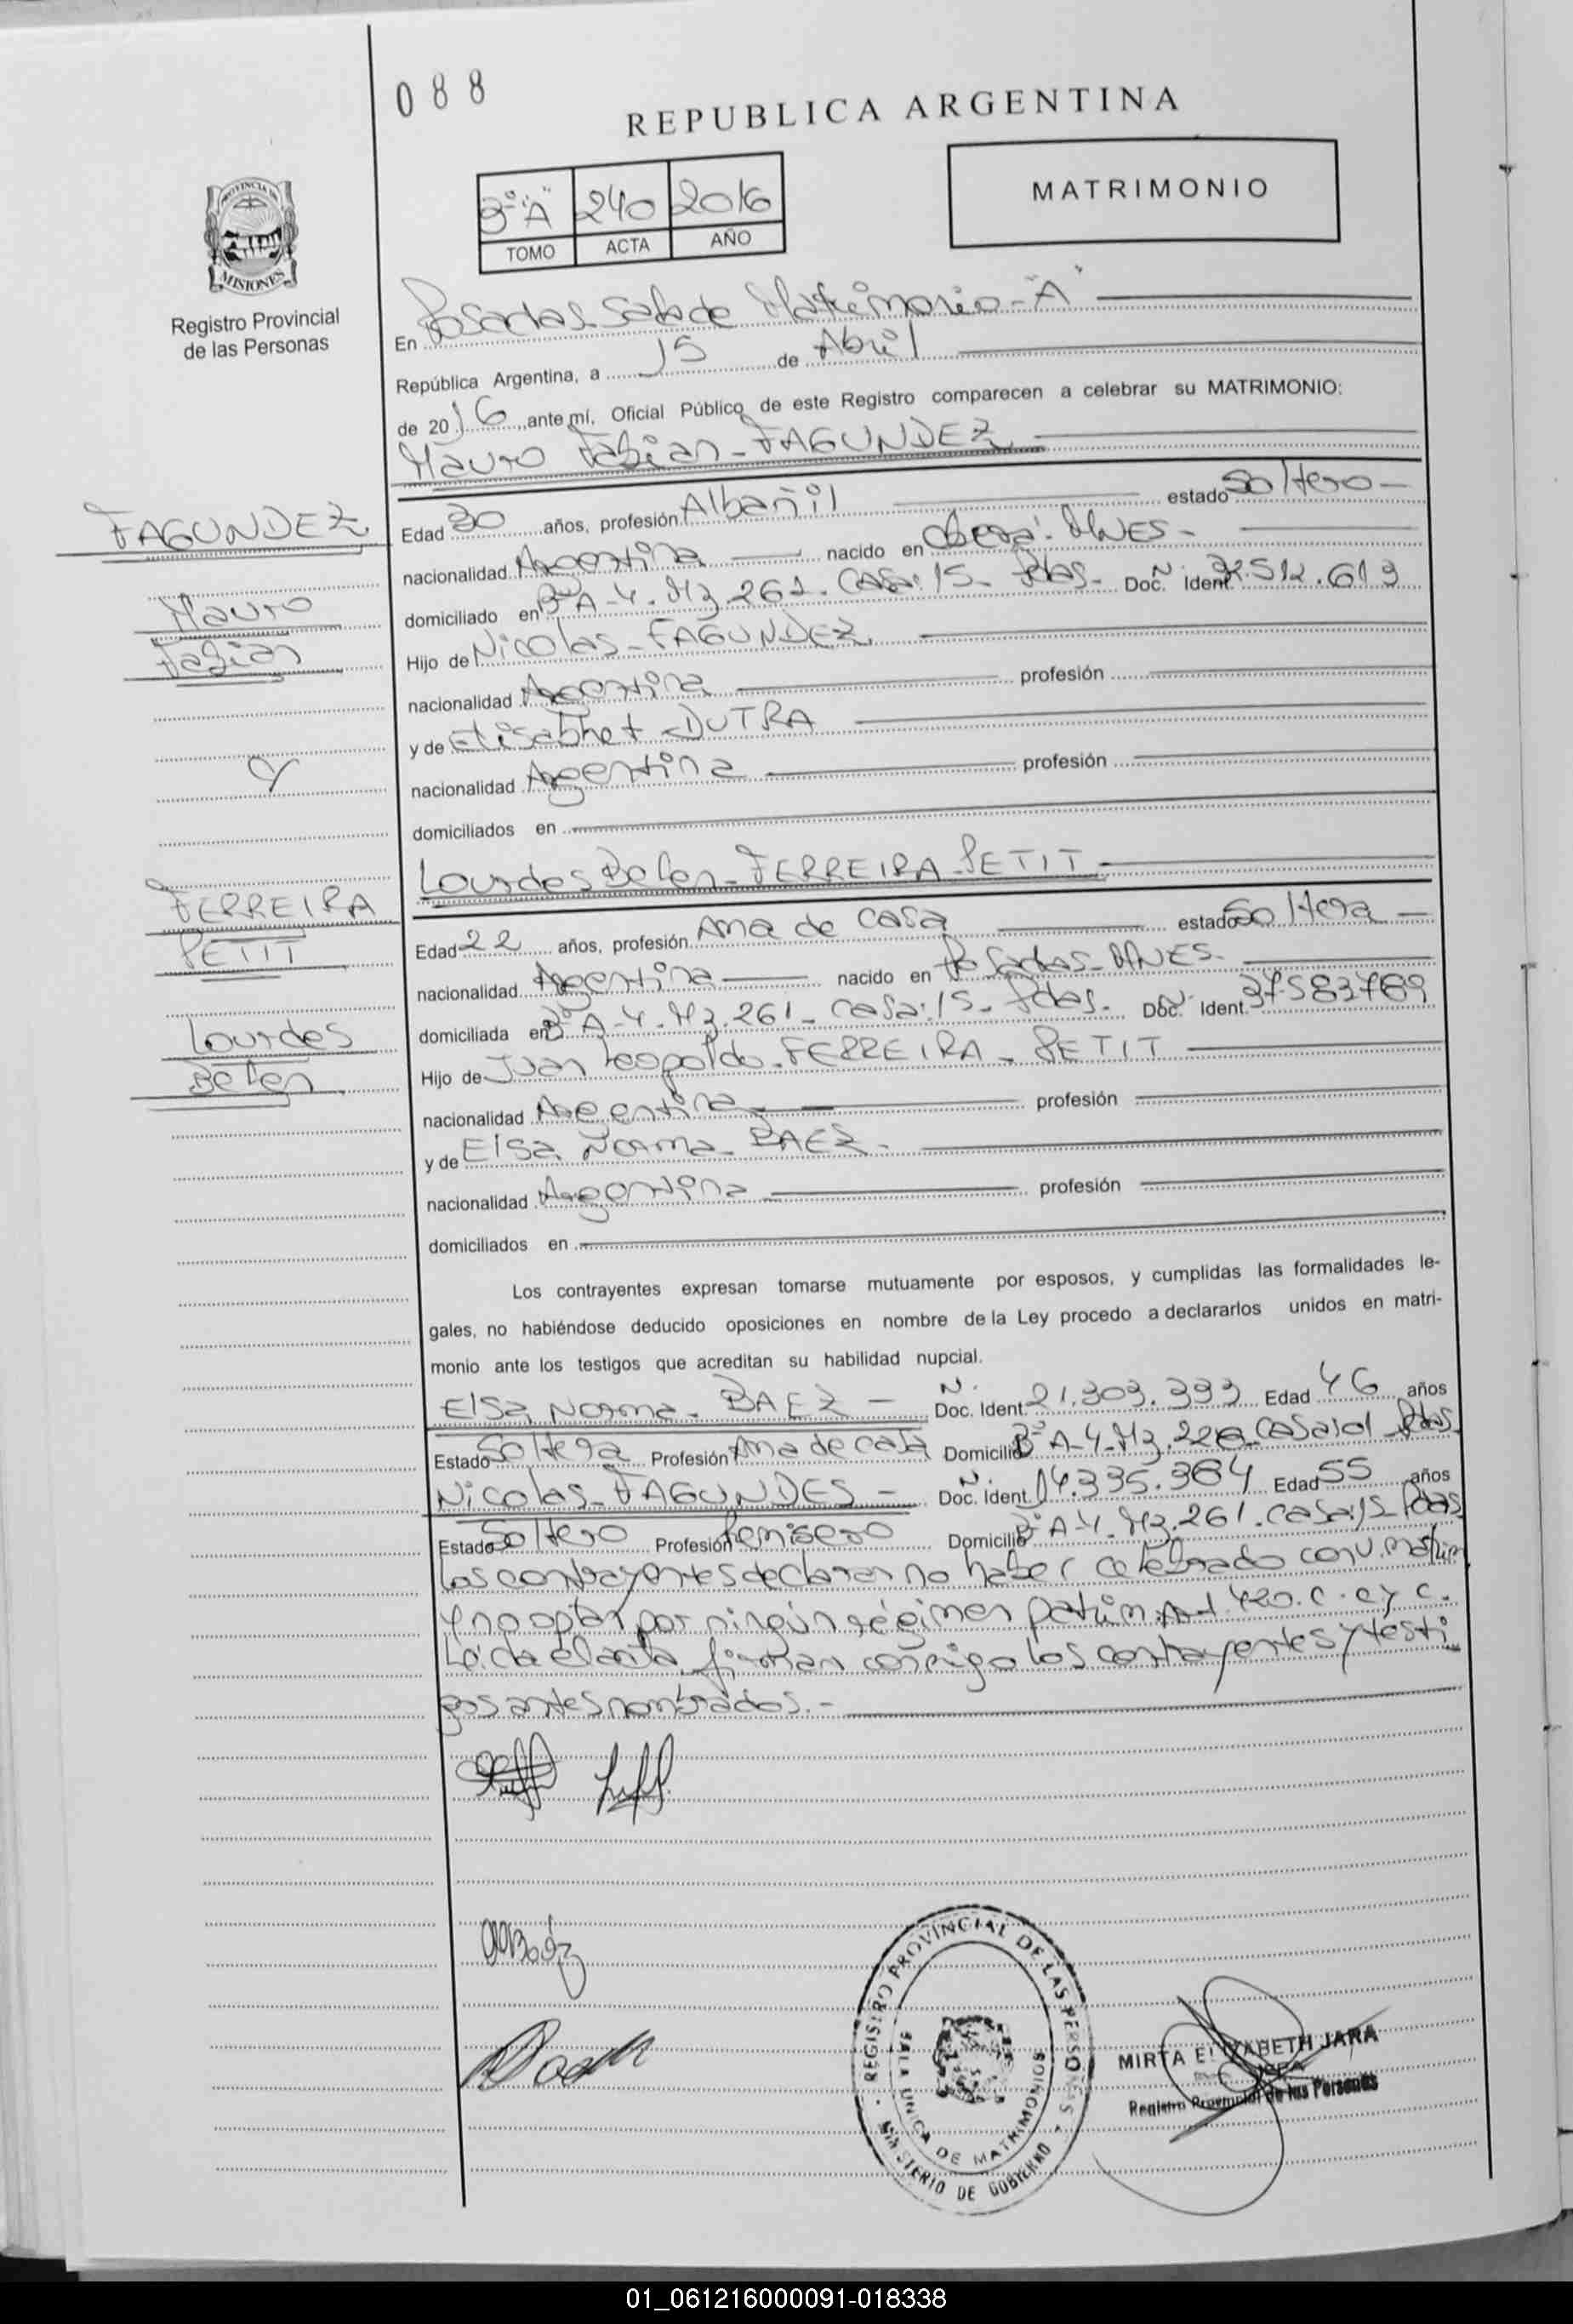 088
REPUBLICA ARGENTINA
3º "A" 240 2016
TOMO ACTA AÑO
MATRIMONIO
PROVINCIA DE
MISIONES
Registro Provincial
de las Personas
En Posadas Sala de Matrimonio - "A"
República Argentina, a 15 de Abril
de 2016, ante mí, Oficial Público de este Registro comparecen a celebrar su MATRIMONIO:
Mauro Fabian - FAGUNDEZ
FAGUNDEZ
Mauro
Fabian
y
FERREIRA
PETIT
Lourdes
Belen
Edad 30 años, profesión Albañil estado Soltero -
nacionalidad Argentina nacido en Oberá: MNES -
domiciliado en Bº A-4. Mz. 261. Casa: 15 - Pdas - Doc. Ident. Nº 32.512.613
Hijo de Nicolas - FAGUNDEZ
nacionalidad Argentina profesión
y de Elisabhet - DUTRA
nacionalidad Argentina profesión
domiciliados en
Lourdes Belen - FERREIRA - PETIT
Edad 22 años, profesión Ama de casa estado Soltera -
nacionalidad Argentina nacido en Posadas - MNES -
domiciliada en Bº A-4. Mz. 261 - Casa: 15 - Pdas. - Doc. Ident. Nº 37583769
Hijo de Juan Leopoldo - FERREIRA - PETIT
nacionalidad Argentina profesión
y de Elsa Norma - BAEZ -
nacionalidad Argentina profesión
domiciliados en
Los contrayentes expresan tomarse mutuamente por esposos, y cumplidas las formalidades le-
gales, no habiéndose deducido oposiciones en nombre de la Ley procedo a declararlos unidos en matri-
monio ante los testigos que acreditan su habilidad nupcial.
Elsa Norma - BAEZ - Doc. Ident. Nº 21.303.393 Edad 46 años
Estado Soltera Profesión Ama de casa Domicilio Bº A-4 - Mz. Pdas
Nicolas - FAGUNDES - Doc. Ident. Nº 14.335.364 Edad 55 años
Estado Soltero Profesión Remisero Domicilio Bº A-4. Mz. 261. Casa: 15 Pdas
Los contrayentes declaran no haber celebrado conv. matrim
y no optan por ningún régimen patrim. Art. 420. C. C y C.
Leída el acta, firman conmigo los contrayentes y testi
gos antes nombrados. -
REGISTRO PROVINCIAL DE LAS PERSONAS
SALA UNICA DE MATRIMONIOS
MINISTERIO DE GOBIERNO
MIRTA ELIZABETH JARA
Registro Provincial de las Personas
01_061216000091-018338